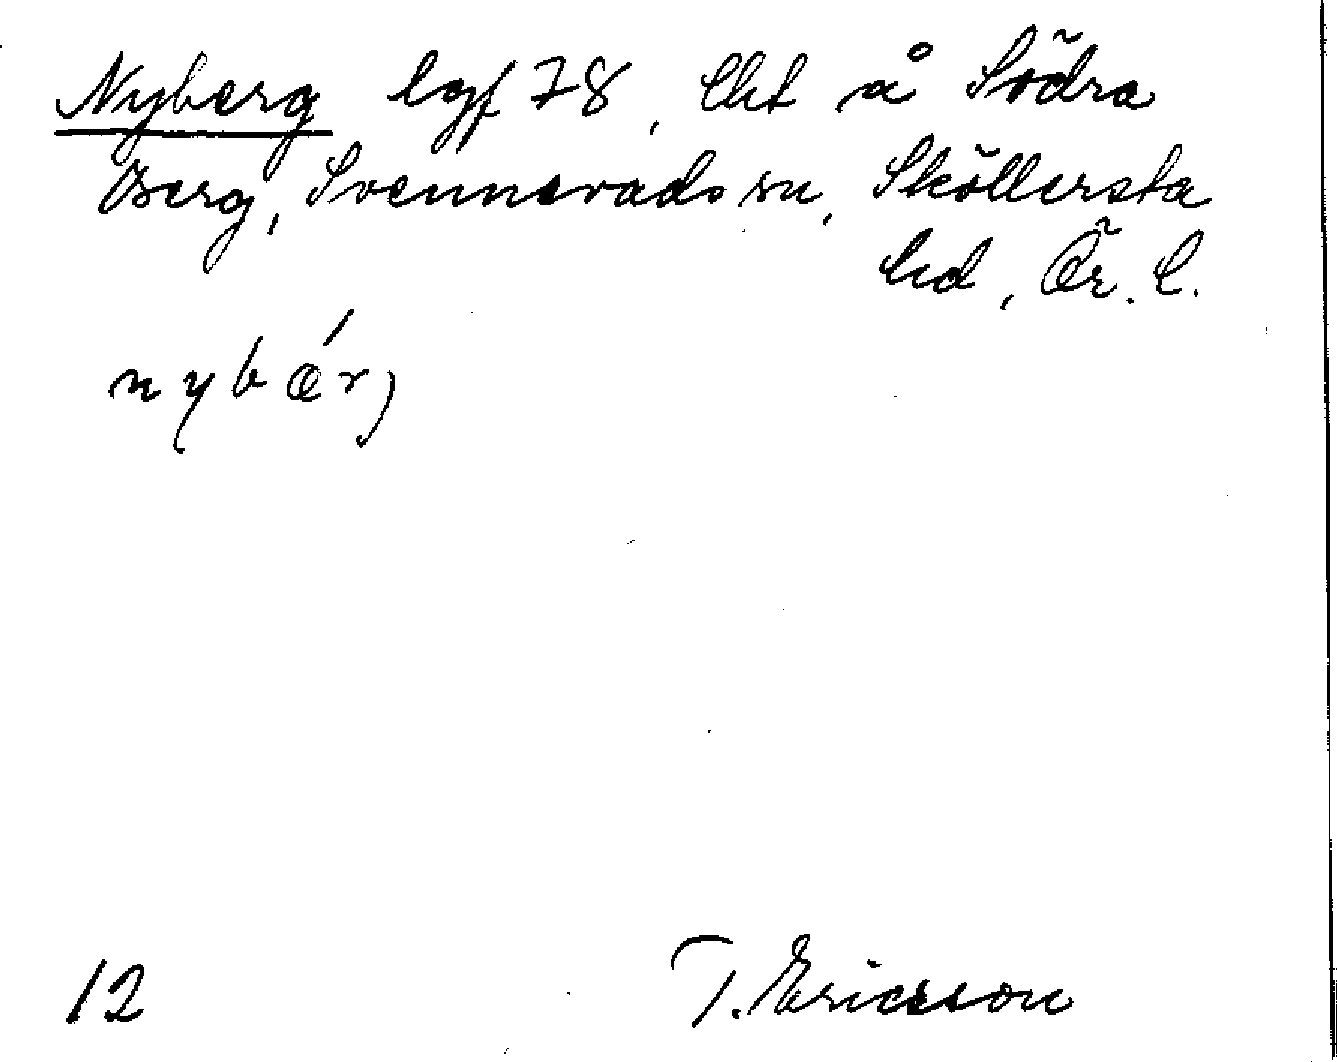 Nyberg lgf 78, lht å Södra
Berg, Svennevads sn, Sköllersta
hd, Ör. l.
nybǽrj
12 T. Ericsson